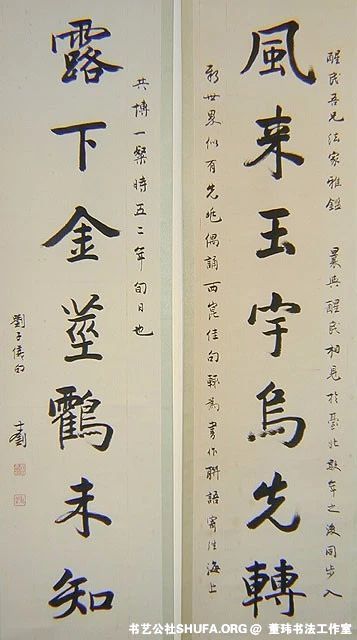 醒民吾兄法家雅鑑 曩與醒民相見於臺北數年之後同步入
風来玉宇烏先轉
新世界似有先兆偶誦西崑佳句輒為書作聯語寄往海上
共博一粲時五二年旬日也
露下金莖鸖未知
劉子儀句 士釗
书艺公社SHUFA.ORG @ 董玮书法工作室